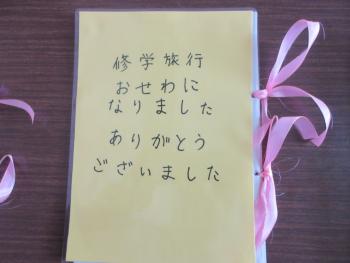 修学旅行
おせわに
なりました
ありがとう
ございました